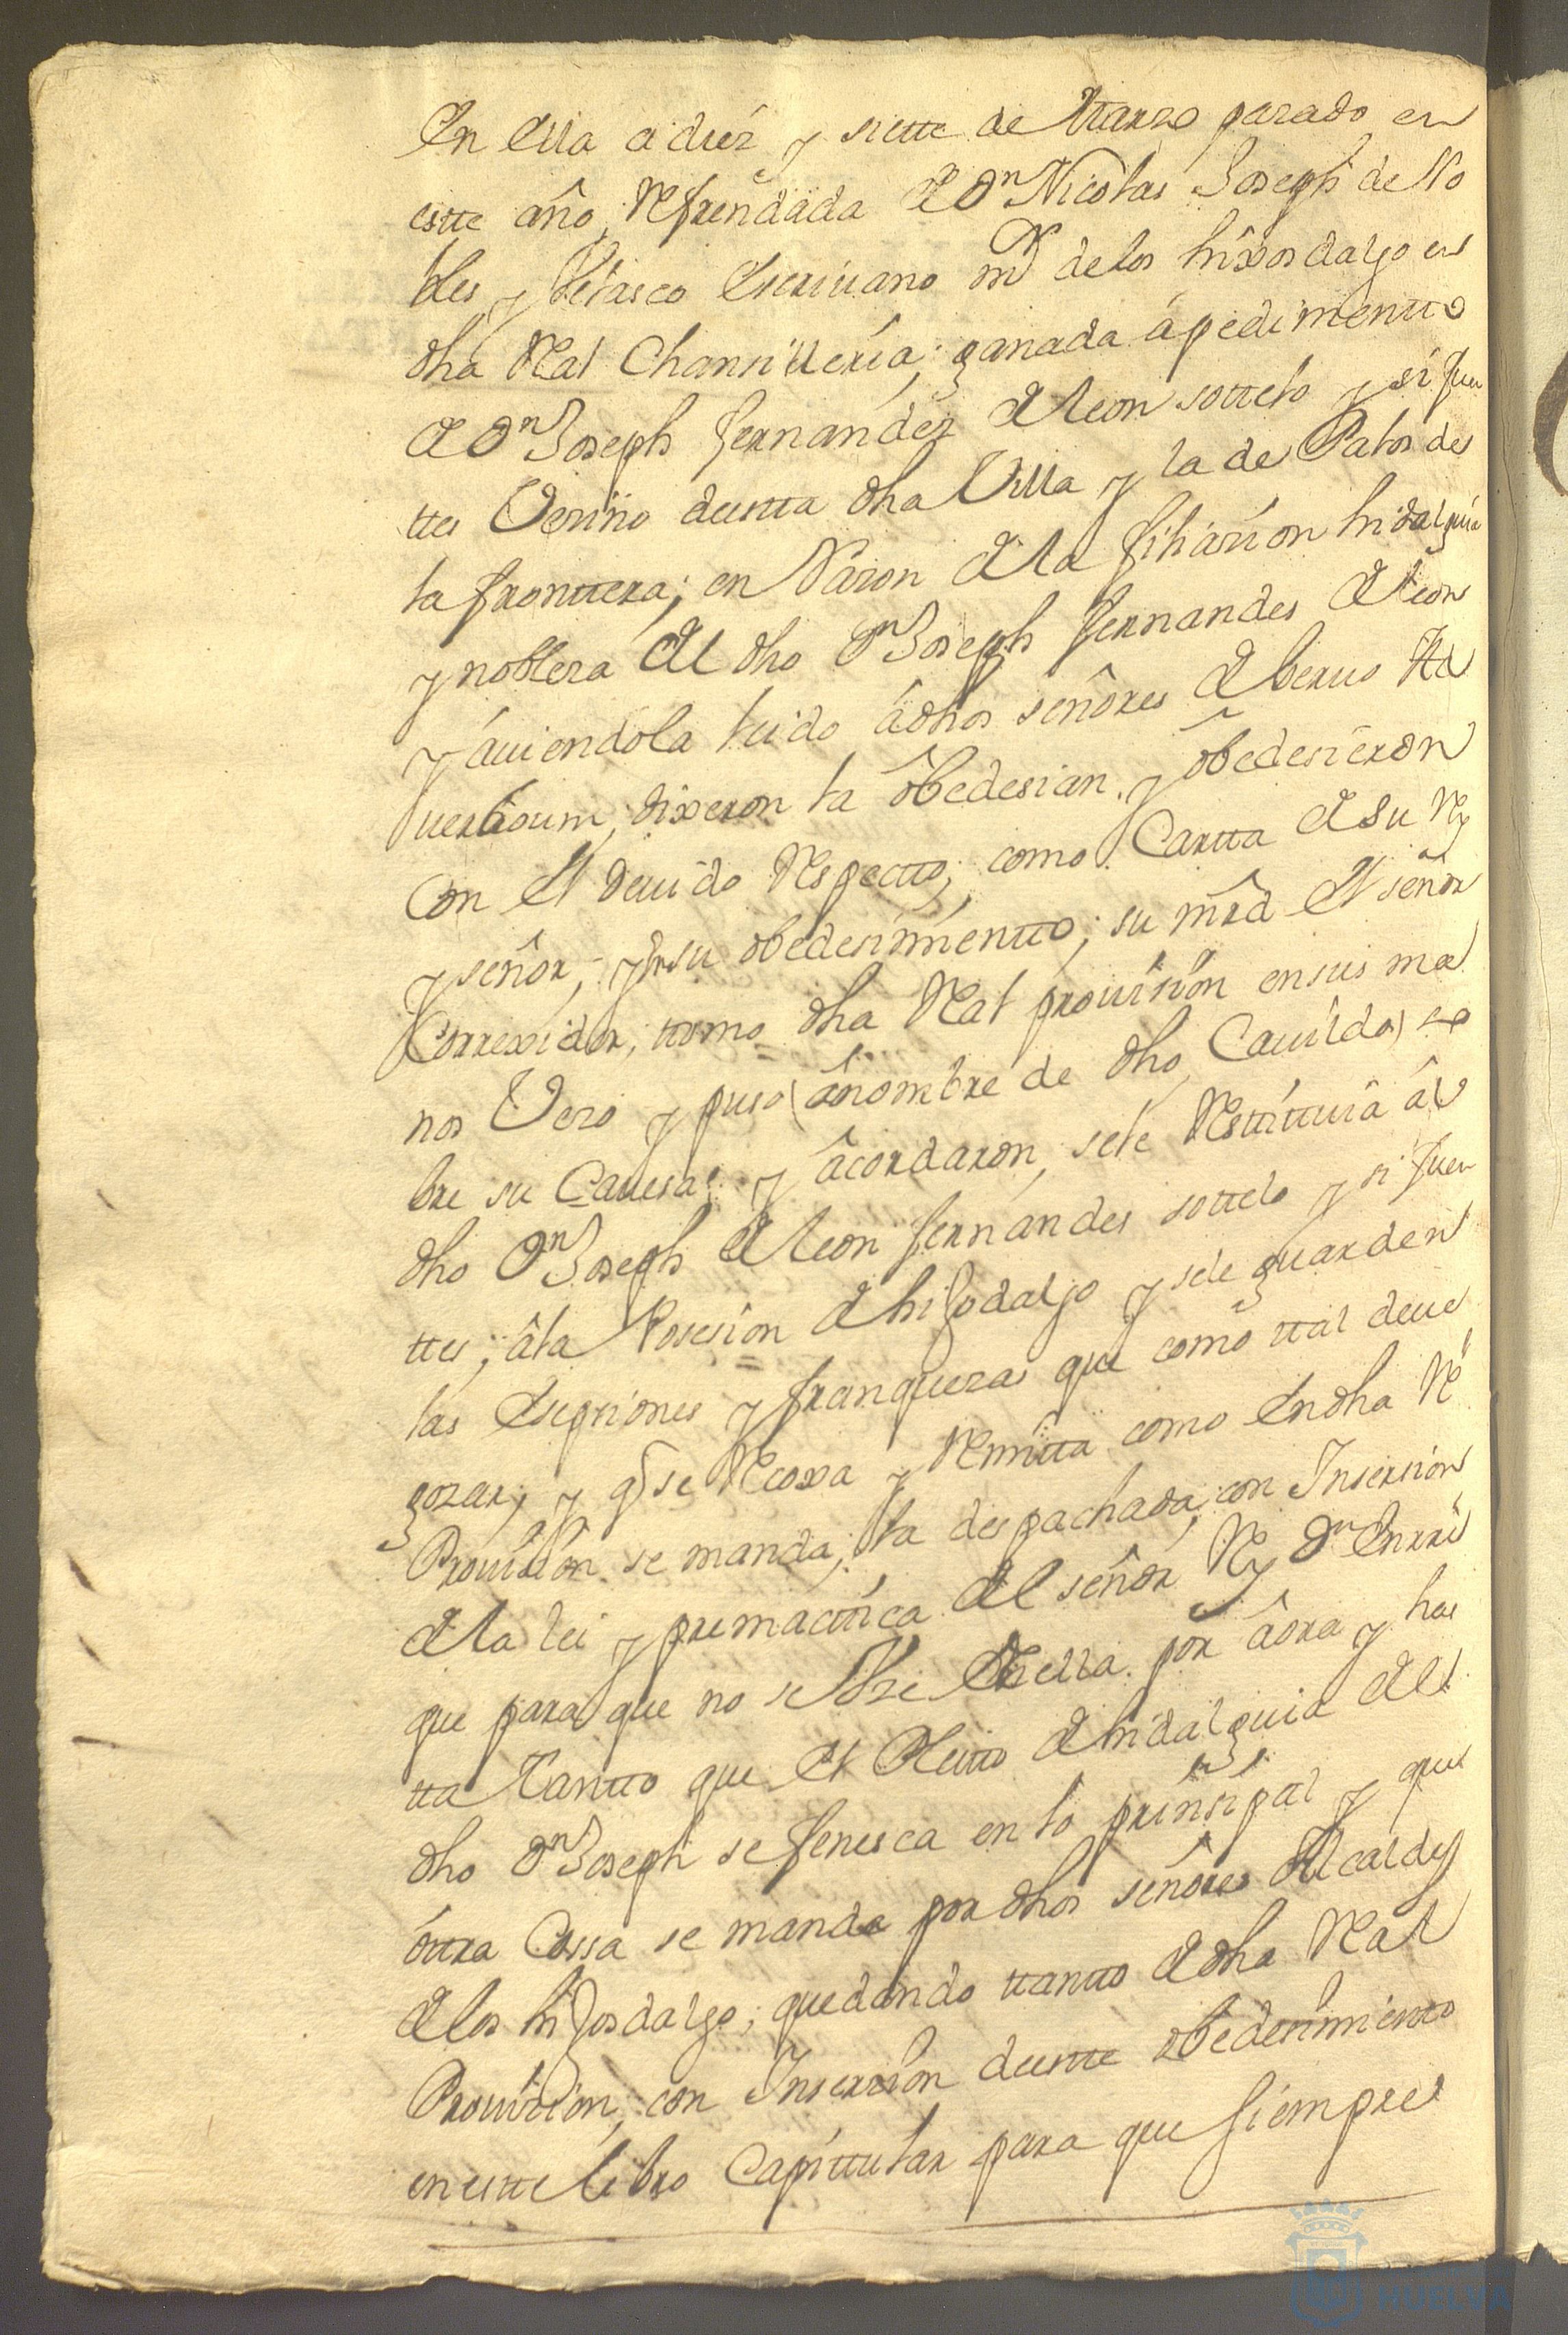 En ella a diez y siette de Marzo pasado en
estte año, Refrendada de Dn Nicolas Joseph de Ro
bles y Velasco Escriuano mr de los hixosdalgo en
dha Real Chansilleria; ganada a pedimentto
de Dn Joseph fernandez de leon sottelo y sifuen
ttes Vezino de estta dha Villa y la de Palos de
la fronttera; en Razon de la filiasion hidalguia
y nobleza del dho Dn Joseph fernandes de leon
y auiendola leido a dhos señores de beruo Ad
uerboum, dixeron la obedesian y obedesieron
Con el deuido Respectto; como Cartta de su Rey
y señor, y en su obedesimientto; su mrd el señor
Correxidor, ttomo dha Real prouision en sus ma
nos Veso y puso (a nombre de dho Cauildo) so
bre su Cauesa: y acordaron, se le Resttittuia al
dho Dn Joseph de leon fernandes sottelo y sifuen
ttes, a la Posesion de hijodalgo y se le guarden
las Esepsiones y franquezas que como ttal deue
gozar; y q se Recoxa y Remitta como En dha Rl
Prouision se manda; la despachada, con Insersion
de la lei y premacttica del señor Rey Dn Enrri
que para que no se Vze de ella por aora y has
tta Tantto que el Pleitto de hidalguia del
dho Dn Joseph se fenesca en lo prinsipal y que
ottra Cossa se mande por dhos señores Alcaldes
de los hijosdalgo; quedando ttantto de dha Real
Prouision, con Insersion de estte obedesimientto
en estte libro Capittular para que siempre
HUELVA